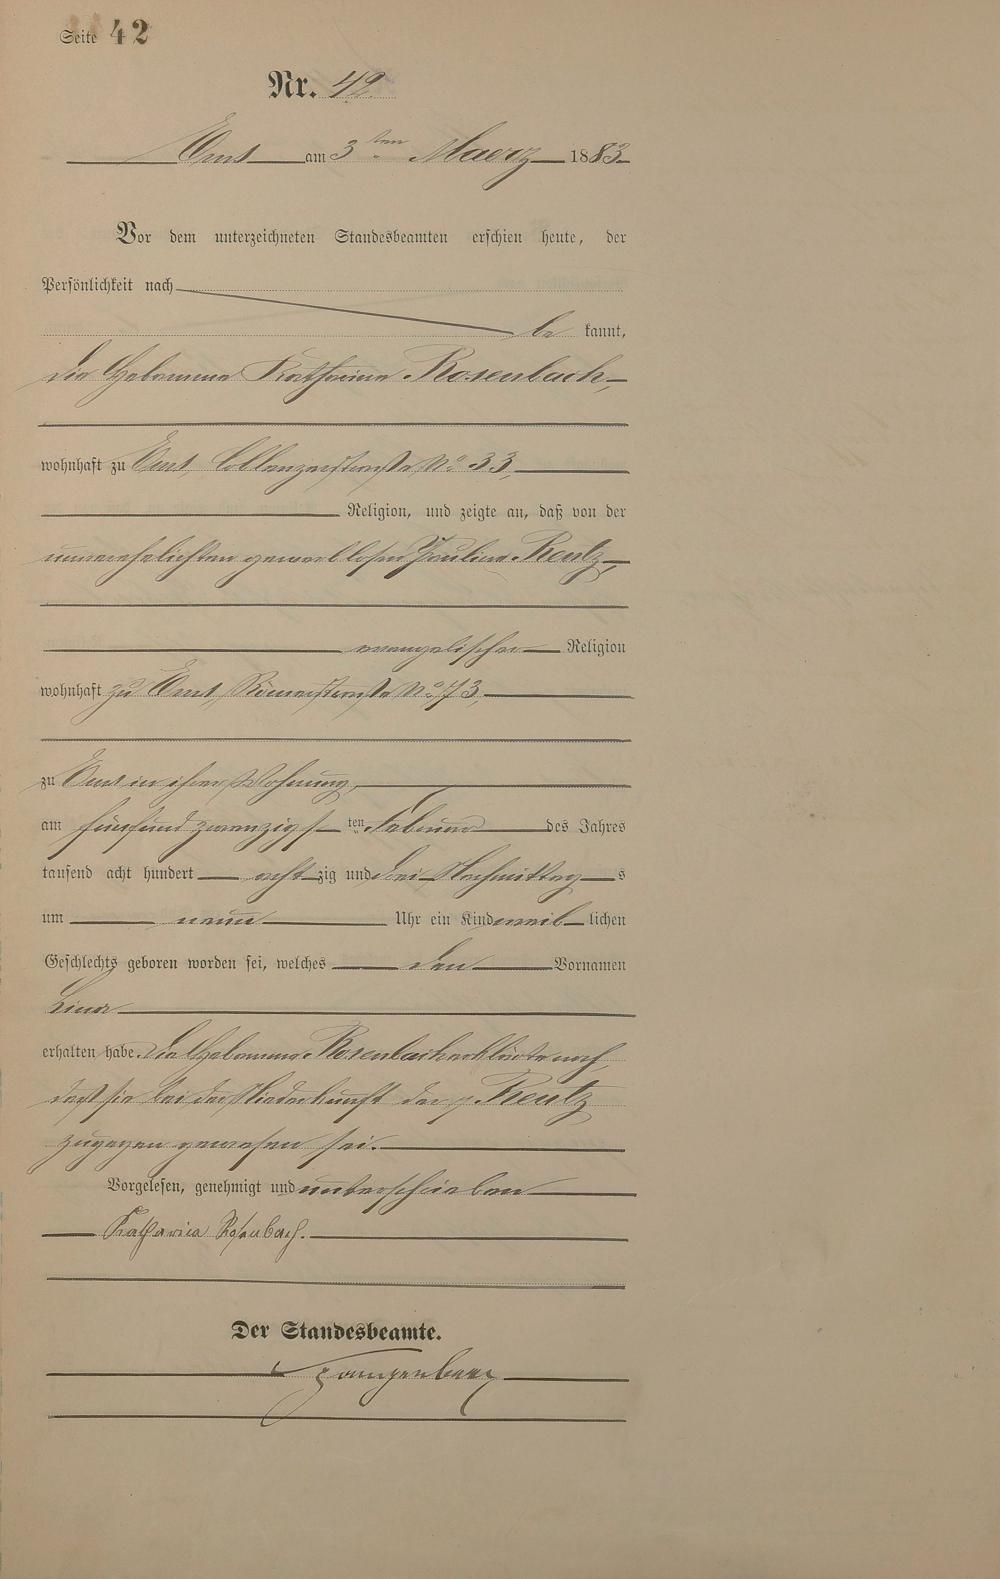 Seite 42
Nr. 42
Ems am 3ten Maerz 1883
Vor dem unterzeichneten Standesbeamten erschien heute, der
Persönlichkeit nach
be kannt,
die Hebamme Katharina Rosenbach,
wohnhaft zu Ems, Coblenzerstraße No 33,
Religion, und zeigte an, daß von der
unverehelichten gewerblosen Pauline Reutz,
evangelischer Religion
wohnhaft zu Ems, Römerstraße No 73,
zu Ems in ihrer Wohnung,
am fünfundzwanzigsten Februar des Jahres
tausend acht hundert achtzig und drei Nachmittags
um neun Uhr ein Kind weiblichen
Geschlechts geboren worden sei, welches den Vornamen
Lina
erhalten habe. Die Hebamme Rosenbach erklärte noch,
daß sie bei der Niederkunft der p. Reutz
zugegen gewesen sei.
Vorgelesen, genehmigt und unterschrieben
Katharina Rosenbach.
Der Standesbeamte.
Spangenberg